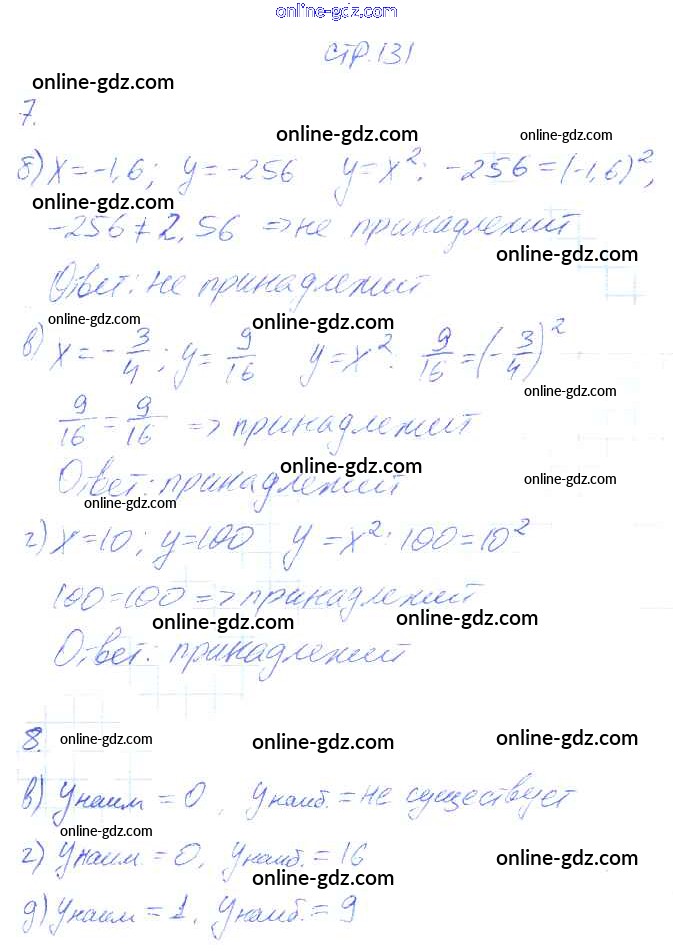 online-gdz.com
стр. 131
online-gdz.com
7.
online-gdz.com online-gdz.com
б) x = -1,6; y = -256 y = x²: -256 = (-1,6)²;
online-gdz.com
-256 ≠ 2,56 => не принадлежит
online-gdz.com
Ответ: не принадлежит
online-gdz.com online-gdz.com online-gdz.com
в) x = -3/4; y = 9/16 y = x²: 9/16 = (-3/4)²
online-gdz.com
9/16 = 9/16 => принадлежит
online-gdz.com
Ответ: принадлежит
online-gdz.com
online-gdz.com
г) x = 10; y = 100 y = x²: 100 = 10²
100 = 100 => принадлежит
online-gdz.com online-gdz.com
Ответ: принадлежит
8. online-gdz.com online-gdz.com online-gdz.com
в) y наим = 0, y наиб. = не существует
online-gdz.com
г) y наим. = 0, y наиб. = 16
online-gdz.com online-gdz.com
д) y наим = 1, y наиб. = 9